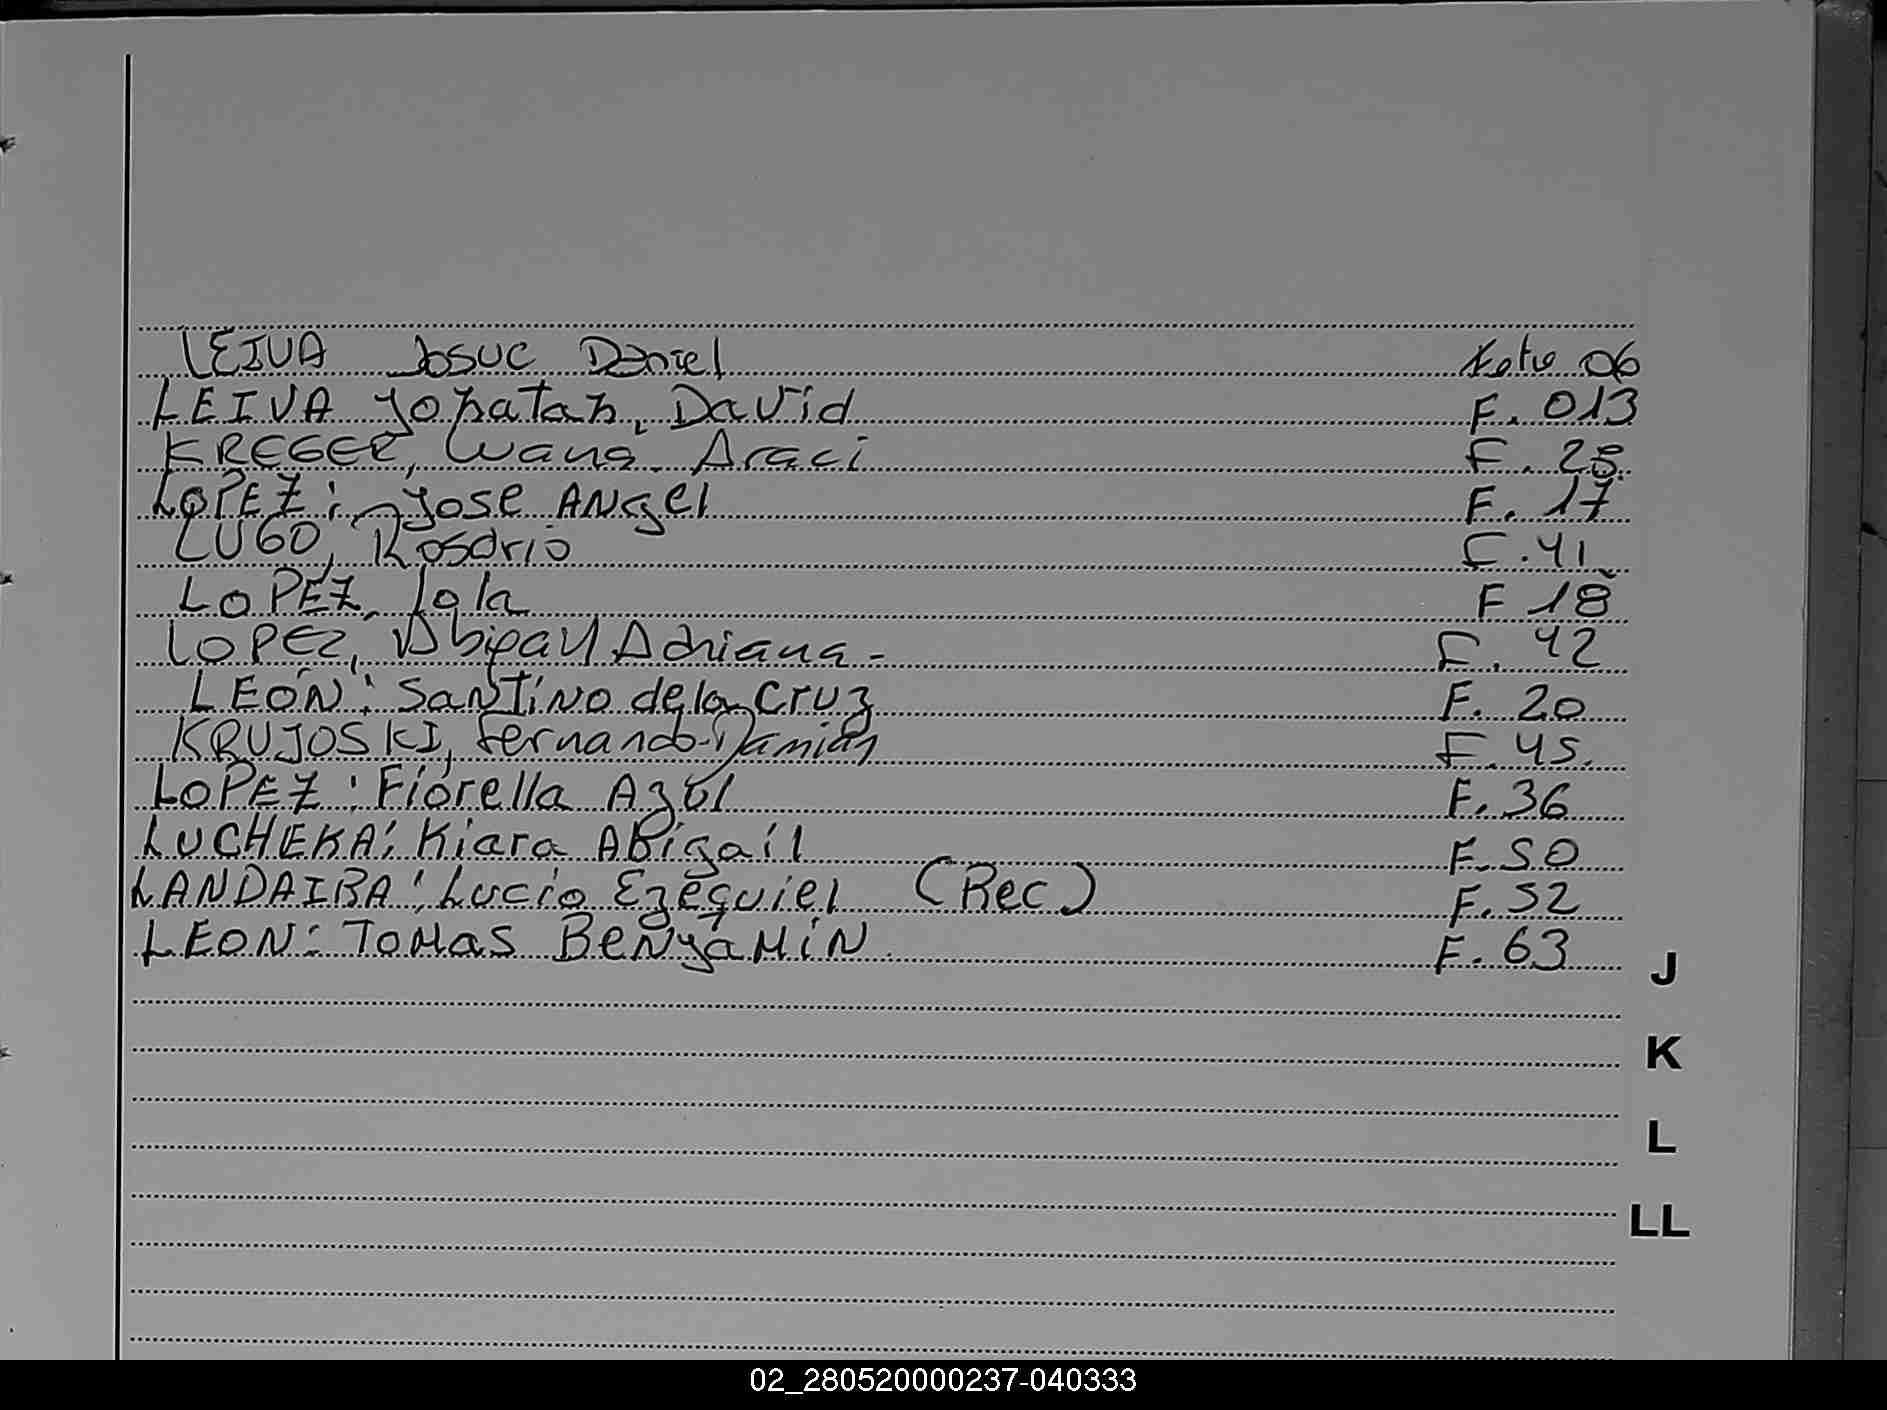 LEIVA Josue Daniel Folio 06
LEIVA Jonatan, David F. 013
KREGER, Luana Araci F. 28
LOPEZ: Jose Angel F. 17
LUGO, Rosario F. 41
LOPEZ, Lola F 18
LOPEZ, Abigail Adriana - F. 42
LEÓN: Santino de la Cruz F. 20
KRUJOSKI, Fernando Damián F. 45.
LOPEZ: Fiorella Azul F. 36
LUCHEKA: Kiara Abigail F. 50
LANDAIRA: Lucio Ezequiel (Rec) F. 52
LEON: Tomas Benyamin F. 63
J
K
L
LL
02_280520000237-040333